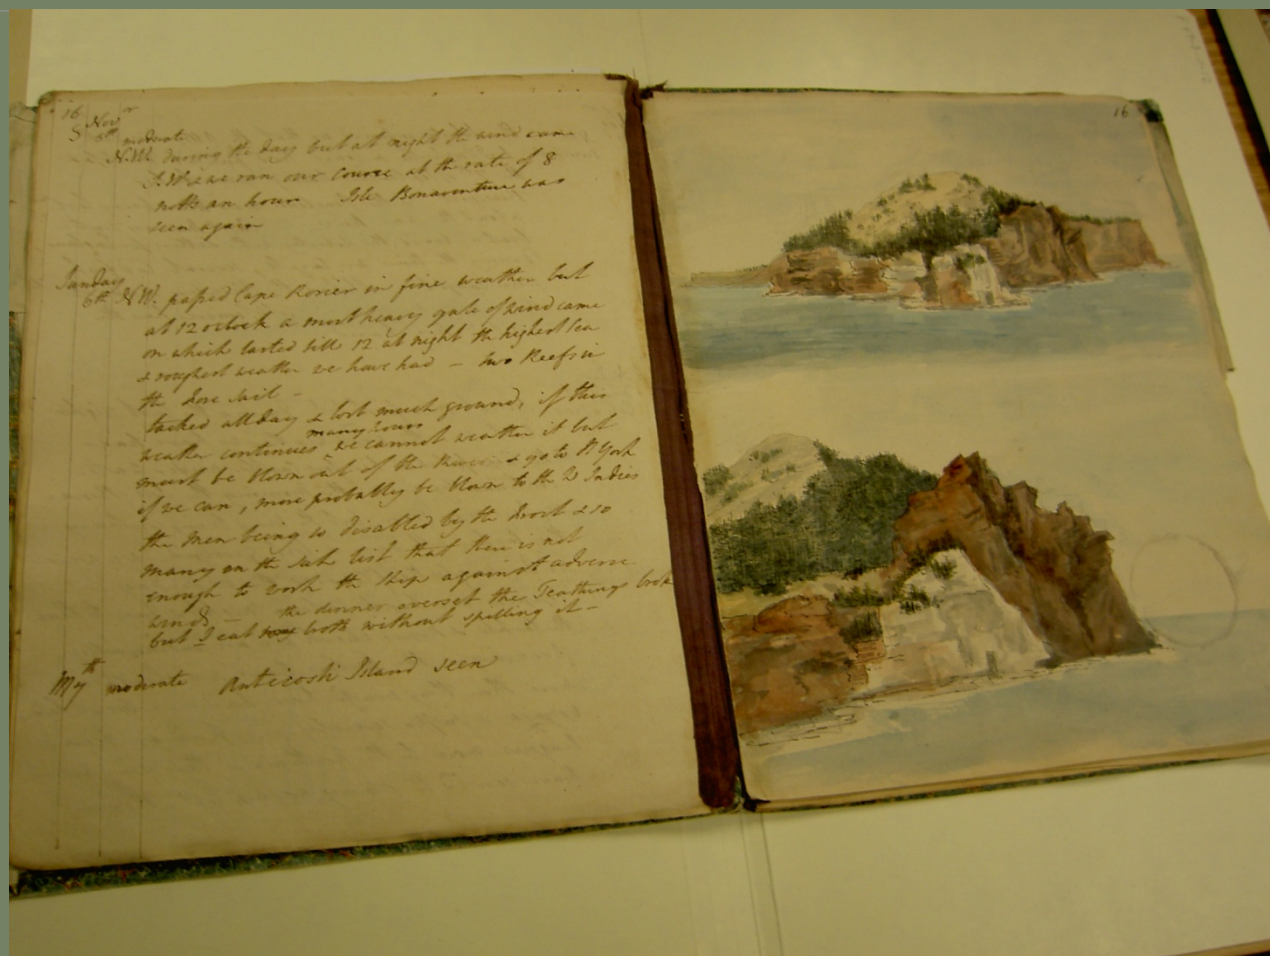 16
Nov.r
S 5th moderate
N.W. during the day but at night the wind came
S.W. & we ran our Course at the rate of 8
nots an hour Isle Bonaventure was
seen again
Sunday
6th N.W. passed Cape Rosier in fine weather but
at 12 oclock a most heavy gale of wind came
on which lasted till 12 at night the highest Sea
& roughest weather we have had – two Reefs in
the fore sail –
tacked all day & lost much ground, if this
many hours
weather continues we cannot weather it but
must be blown out of the River & go to N York
if we can, more probably be blown to the W Indies
the men being so disabled by the & so
many on the sick list that there is not
enough to work the ship against adverse
winds – the dinner overset the Teathings broke
but I eat both without spilling it –
M 7th moderate Anticosti Island seen
16